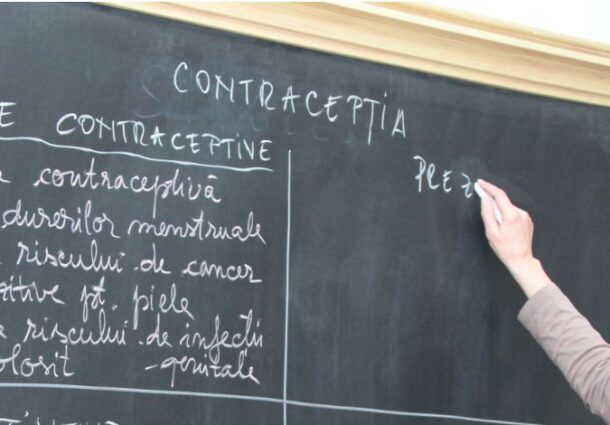 CONTRACEPȚIA
E CONTRACEPTIVE
PREZ
contraceptivă
durerilor menstruale
riscului de cancer
pt. piele
riscului de infecții
olosit - genitale